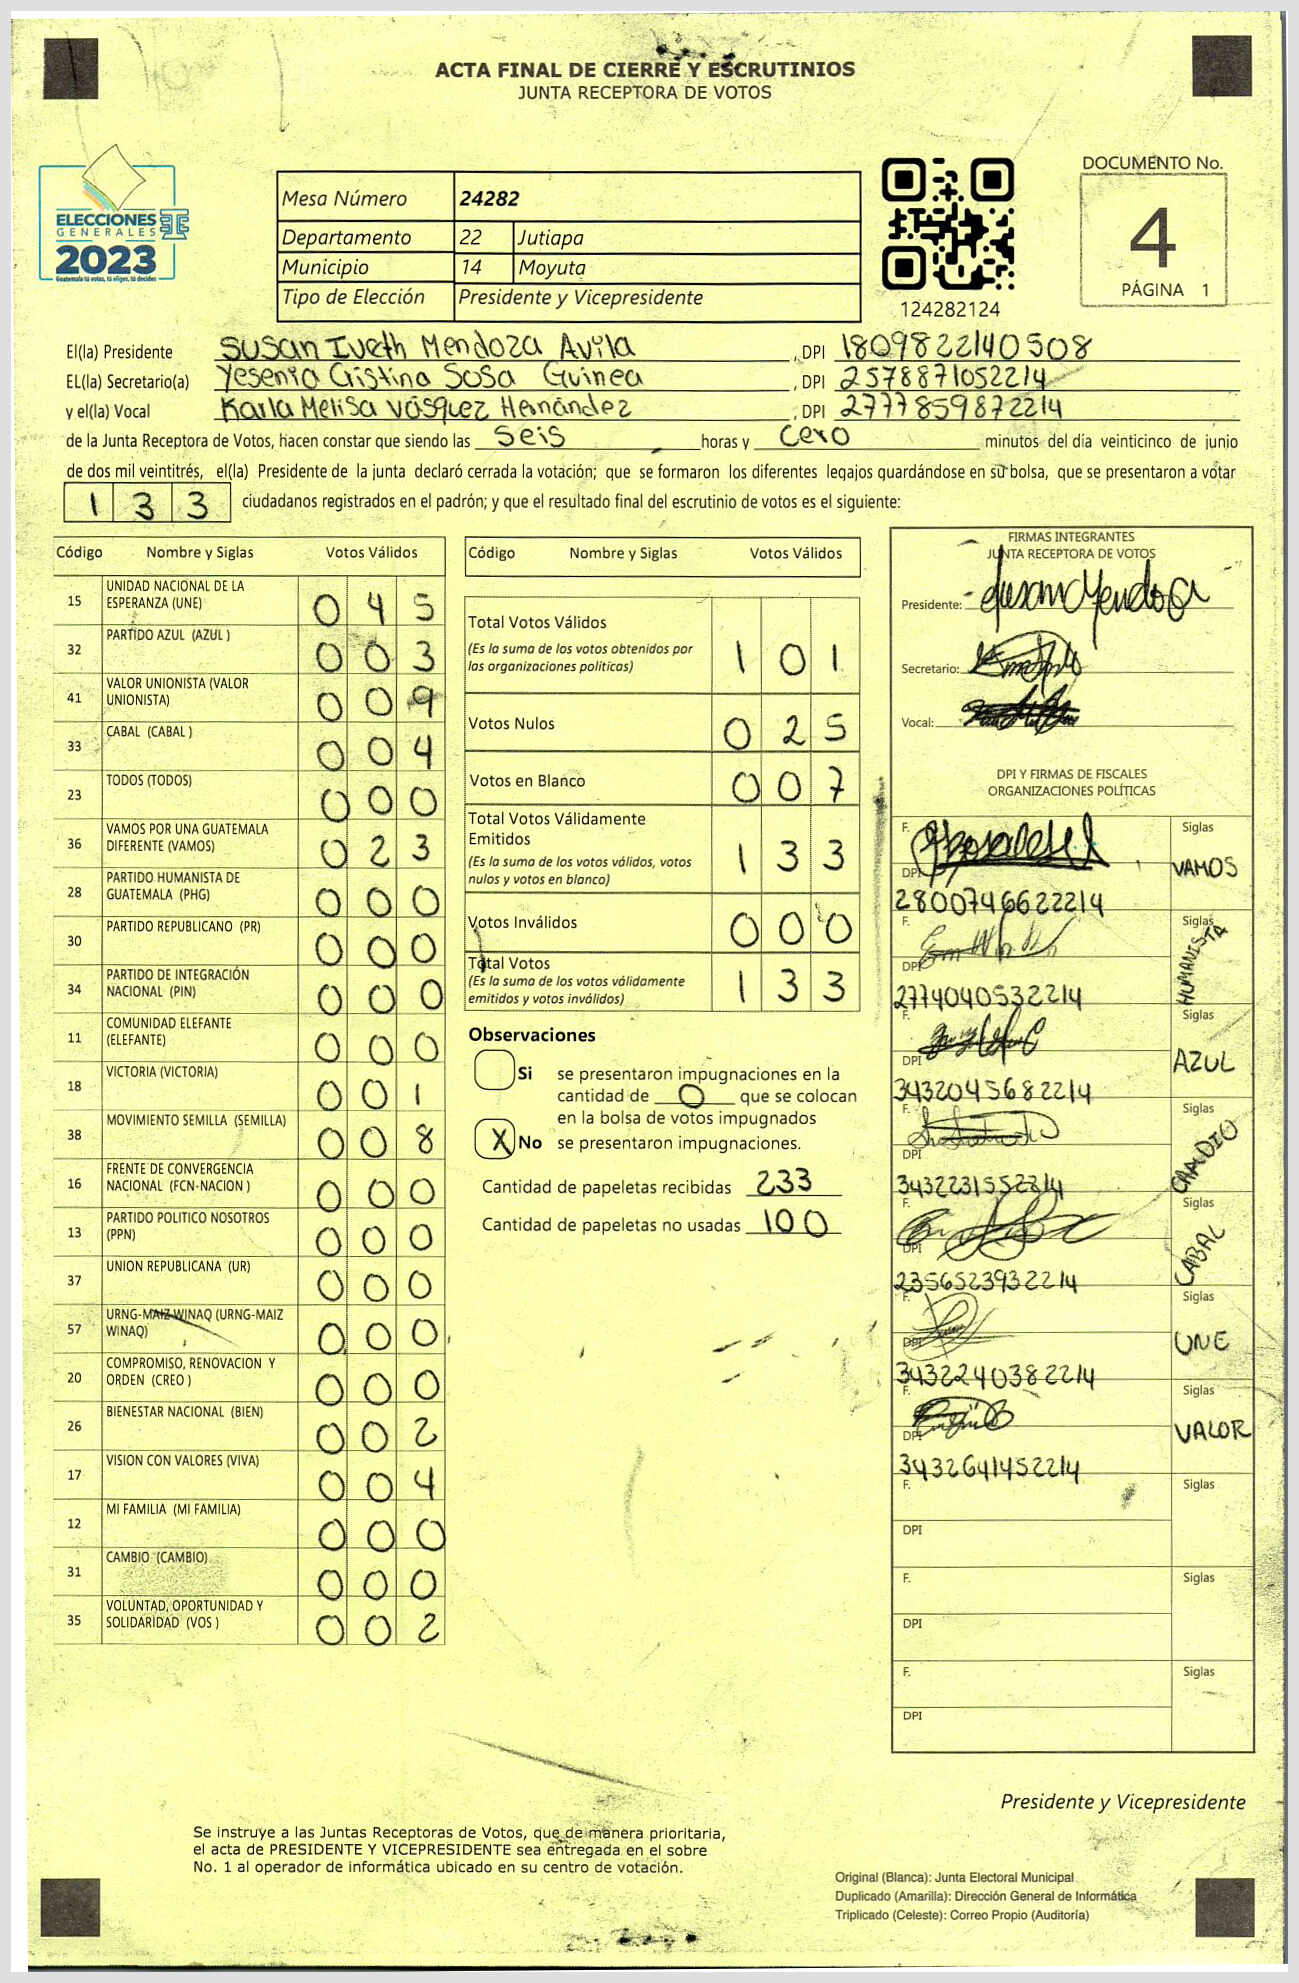 ACTA FINAL DE CIERRE Y ESCRUTINIOS
JUNTA RECEPTORA DE VOTOS
ELECCIONES
GENERALES
2023
Guatemala tú votas, tú eliges, tú decides
Mesa Número 24282
Departamento 22 Jutiapa
Municipio 14 Moyuta
Tipo de Elección Presidente y Vicepresidente
124282124
DOCUMENTO No.
4
PÁGINA 1
El(la) Presidente Susan Iveth Mendoza Avila , DPI 1809822140508
EL(la) Secretario(a) Yesenia Cristina Sosa Guinea , DPI 2578871052214
y el(la) Vocal Karla Melisa Vásquez Hernández , DPI 2777859872214
de la Junta Receptora de Votos, hacen constar que siendo las seis horas y cero minutos del día veinticinco de junio
de dos mil veintitrés, el(la) Presidente de la junta declaró cerrada la votación; que se formaron los diferentes legajos guardándose en su bolsa, que se presentaron a votar
133 ciudadanos registrados en el padrón; y que el resultado final del escrutinio de votos es el siguiente:
Código Nombre y Siglas Votos Válidos
15 UNIDAD NACIONAL DE LA ESPERANZA (UNE) 045
32 PARTIDO AZUL (AZUL ) 003
41 VALOR UNIONISTA (VALOR UNIONISTA) 009
33 CABAL (CABAL ) 004
23 TODOS (TODOS) 000
36 VAMOS POR UNA GUATEMALA DIFERENTE (VAMOS) 023
28 PARTIDO HUMANISTA DE GUATEMALA (PHG) 000
30 PARTIDO REPUBLICANO (PR) 000
34 PARTIDO DE INTEGRACIÓN NACIONAL (PIN) 000
11 COMUNIDAD ELEFANTE (ELEFANTE) 000
18 VICTORIA (VICTORIA) 001
38 MOVIMIENTO SEMILLA (SEMILLA) 008
16 FRENTE DE CONVERGENCIA NACIONAL (FCN-NACION ) 000
13 PARTIDO POLITICO NOSOTROS (PPN) 000
37 UNION REPUBLICANA (UR) 000
57 URNG-MAIZ WINAQ (URNG-MAIZ WINAQ) 000
20 COMPROMISO, RENOVACION Y ORDEN (CREO ) 000
26 BIENESTAR NACIONAL (BIEN) 002
17 VISION CON VALORES (VIVA) 004
12 MI FAMILIA (MI FAMILIA) 000
31 CAMBIO (CAMBIO) 000
35 VOLUNTAD, OPORTUNIDAD Y SOLIDARIDAD (VOS ) 002
Código Nombre y Siglas Votos Válidos
Total Votos Válidos 101
(Es la suma de los votos obtenidos por
las organizaciones políticas)
Votos Nulos 025
Votos en Blanco 007
Total Votos Válidamente
Emitidos 133
(Es la suma de los votos válidos, votos
nulos y votos en blanco)
Votos Inválidos 000
Total Votos 133
(Es la suma de los votos válidamente
emitidos y votos inválidos)
Observaciones
Si se presentaron impugnaciones en la
cantidad de 0 que se colocan
en la bolsa de votos impugnados
X No se presentaron impugnaciones.
Cantidad de papeletas recibidas 233
Cantidad de papeletas no usadas 100
FIRMAS INTEGRANTES
JUNTA RECEPTORA DE VOTOS
Presidente: Susan Mendoza
Secretario:
Vocal:
DPI Y FIRMAS DE FISCALES
ORGANIZACIONES POLÍTICAS
F. Siglas
DPI VAMOS
2800746622214
F. Siglas
DPI HUMANISTA
2774040532214
F. Siglas
DPI AZUL
3432045682214
F. Siglas
DPI
3432231552214
F. Siglas
DPI CABAL
2356523932214
F. Siglas
DPI UNE
3432240382214
F. Siglas
DPI VALOR
3432641452214
F. Siglas
DPI
F. Siglas
DPI
F. Siglas
DPI
Presidente y Vicepresidente
Se instruye a las Juntas Receptoras de Votos, que de manera prioritaria,
el acta de PRESIDENTE Y VICEPRESIDENTE sea entregada en el sobre
No. 1 al operador de informática ubicado en su centro de votación.
Original (Blanca): Junta Electoral Municipal
Duplicado (Amarilla): Dirección General de Informática
Triplicado (Celeste): Correo Propio (Auditoría)